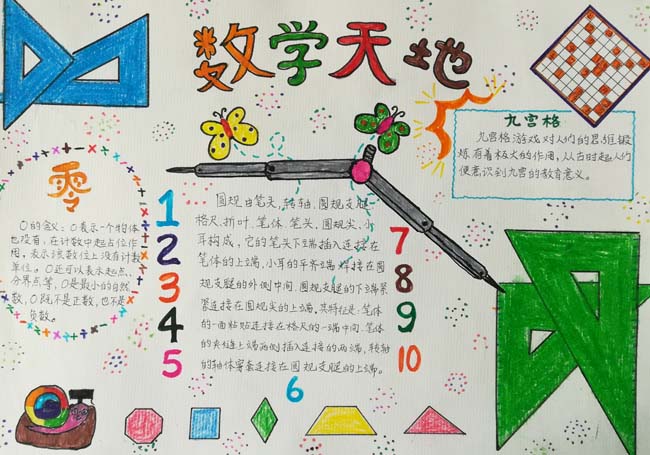 数学天地
九宫格
九宫格游戏对人们的思维锻
炼有着极大的作用,从古时起人们
便意识到九宫的教育意义。
零
0的含义:0表示一个物体
也没有,在计数中起占位作
用,表示该数位上没有计数
单位。0还可以表示起点、
分界点等,0是最小的自然
数,0既不是正数,也不是
负数。
1
2
3
4
5
圆规由笔头、转轴、圆规支腿、
格尺、折叶、笔体、笔头、圆规尖、小
耳构成,它的笔头下端插入连接在
笔体的上端,小耳的平齐端焊接在圆
规支腿的外侧中间,圆规支腿的下端紧
紧连接在圆规尖的上端,其特征是:笔体
的一面粘贴连接在格尺的一端中间,笔体
的夹缝上端两侧插入连接的两端,转轴
的轴体紧紧连接在圆规支腿的上端。
6
7
8
9
10